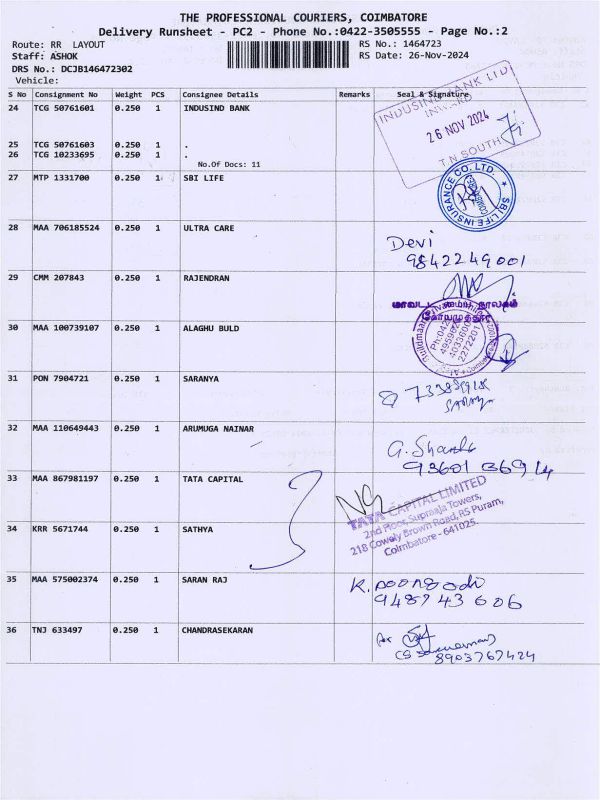 THE PROFESSIONAL COURIERS, COIMBATORE
Delivery Runsheet - PC2 - Phone No.:0422-3505555 - Page No.:2
Route: RR LAYOUT
RS No.: 1464723
Staff: ASHOK
RS Date: 26-Nov-2024
DRS No.: DCJB146472302
Vehicle:
S No Consignment No Weight PCS Consignee Details Remarks Seal & Signature
24 TCG 50761601 0.250 1 INDUSIND BANK
INDUSIND BANK LTD
INWARD
26 NOV 2024
T.N.SOUTH
25 TCG 50761603 0.250 1 .
26 TCG 10233695 0.250 1 .
No.Of Docs: 11
27 MTP 1331700 0.250 1 SBI LIFE
SBI LIFE INSURANCE CO. LTD.
28 MAA 706185524 0.250 1 ULTRA CARE
Devi
9842249001
29 CMM 207843 0.250 1 RAJENDRAN
30 MAA 100739107 0.250 1 ALAGHU BULD
31 PON 7904721 0.250 1 SARANYA
32 MAA 110649443 0.250 1 ARUMUGA NAINAR
33 MAA 867981197 0.250 1 TATA CAPITAL
TATA CAPITAL LIMITED
2nd Floor, Supraaja Towers,
218 Cowely Brown Road, RS Puram,
Coimbatore - 641025.
34 KRR 5671744 0.250 1 SATHYA
35 MAA 575002374 0.250 1 SARAN RAJ
36 TNJ 633497 0.250 1 CHANDRASEKARAN
8903767424